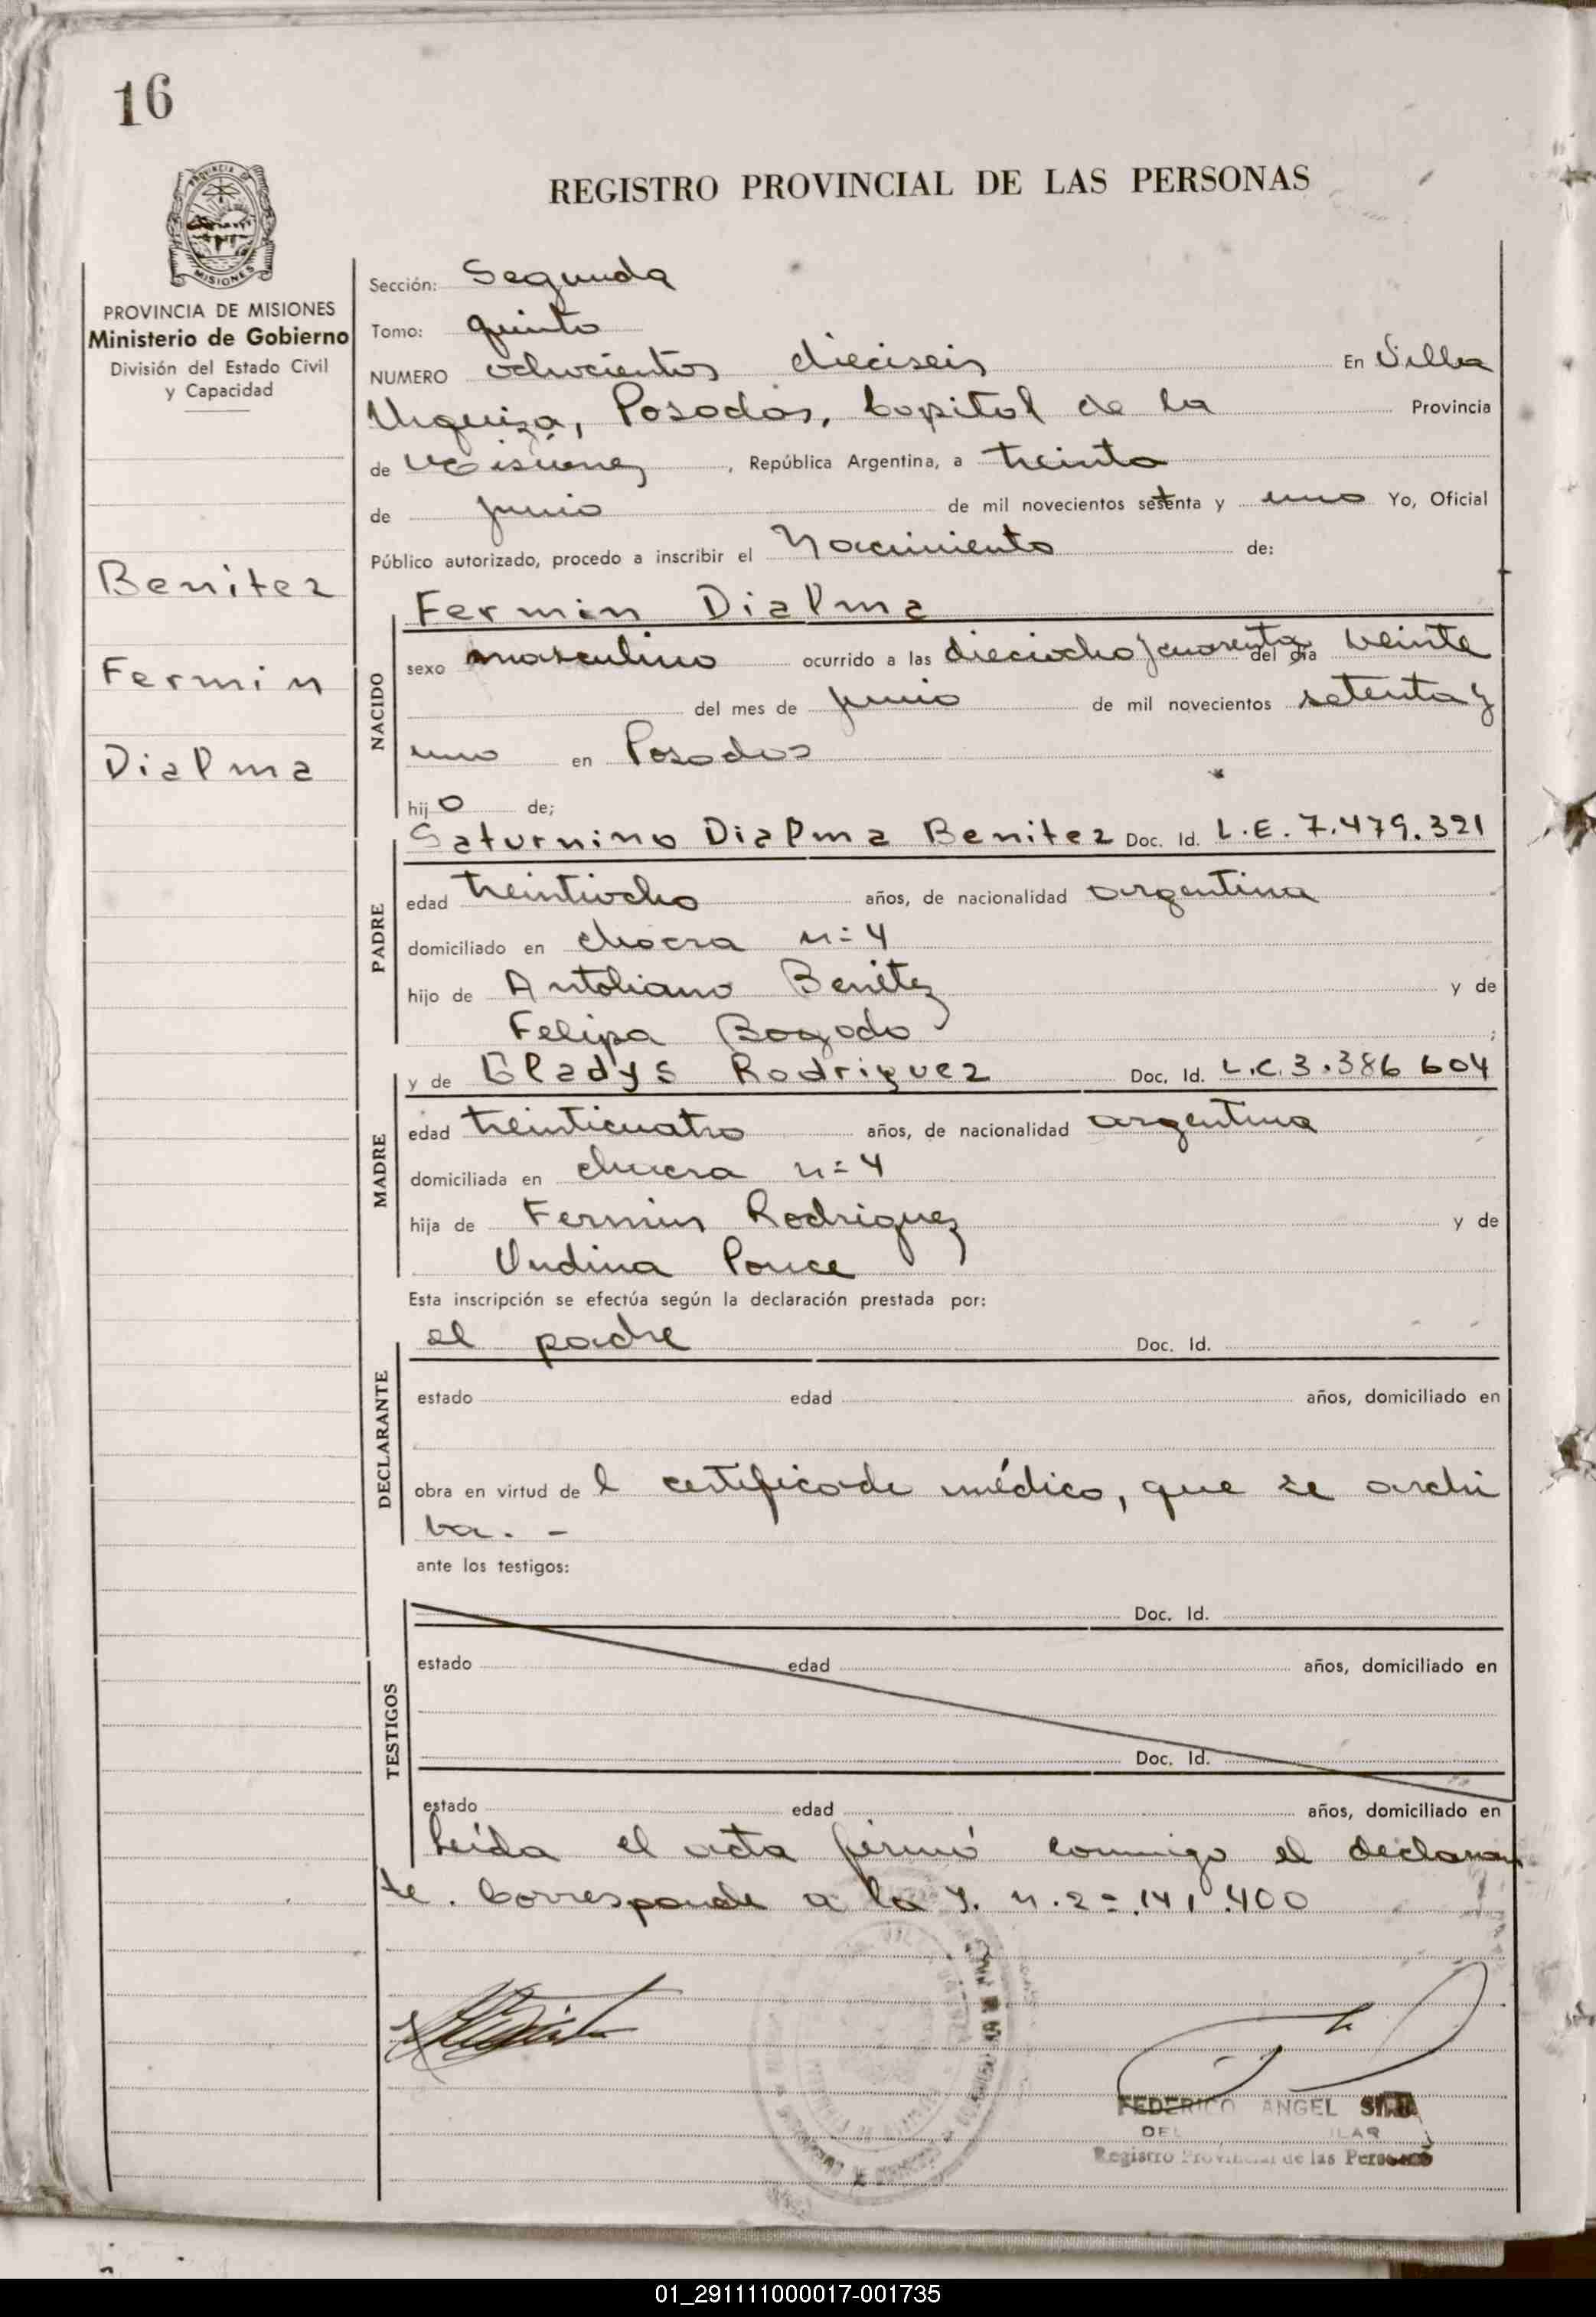 16
PROVINCIA DE
MISIONES
REGISTRO PROVINCIAL DE LAS PERSONAS
PROVINCIA DE MISIONES
Ministerio de Gobierno
División del Estado Civil
y Capacidad
Benitez
Fermin
Dialma
Sección: Segunda
Tomo: quinto
NUMERO ochocientos dieciseis En Villa
Urquiza, Posadas, Capital de la Provincia
de Misiones, República Argentina, a treinta
de junio de mil novecientos setenta y uno Yo, Oficial
Público autorizado, procedo a inscribir el Nacimiento de:
NACIDO
Fermin Dialma
sexo masculino ocurrido a las dieciocho y cuarenta del día veinte
del mes de junio de mil novecientos setenta y
uno en Posadas
hijo de;
PADRE
Saturnino Dialma Benitez Doc. Id. L.E. 7.479.321
edad treintiocho años, de nacionalidad argentina
domiciliado en chacra n=4
hijo de Antoliano Benitez y de
Felipa Bogado ;
MADRE
y de Gladys Rodriguez Doc. Id. L.C. 3.386 604
edad treinticuatro años, de nacionalidad argentina
domiciliada en chacra n=4
hija de Fermin Rodriguez y de
Undina Ponce
Esta inscripción se efectúa según la declaración prestada por:
DECLARANTE
el padre Doc. Id.
estado edad años, domiciliado en
obra en virtud de l certificado médico, que se archi
va. -
ante los testigos:
TESTIGOS
Doc. Id.
estado edad años, domiciliado en
Doc. Id.
estado edad años, domiciliado en
Leída el acta firmó conmigo el declaran
te. Corresponde a la n.2=.141.400
FEDERICO ANGEL
Registro Provincial de las Personas
01_291111000017-001735